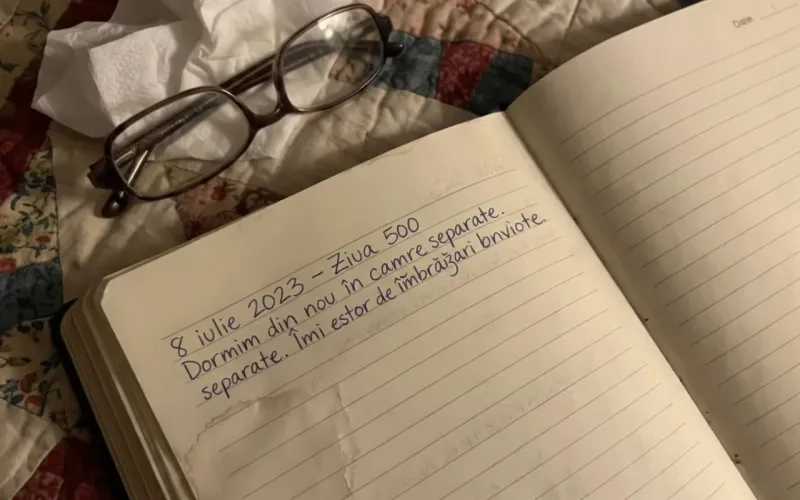 Date
8 iulie 2023 – Ziua 500
Dormim din nou în camre separate.
separate. Îmi estor de îmbrăzari bnviote.